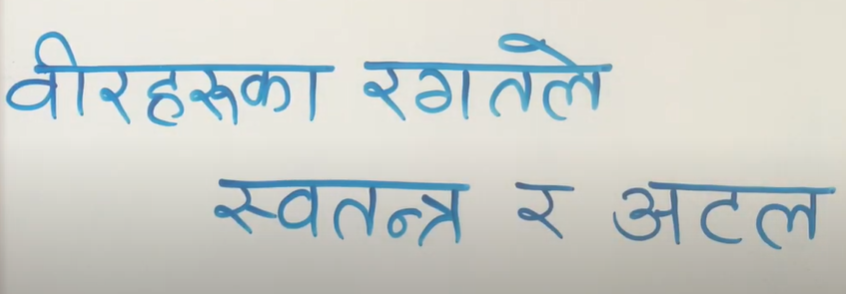 वीरहरूका रगतले
स्वतन्त्र र अटल